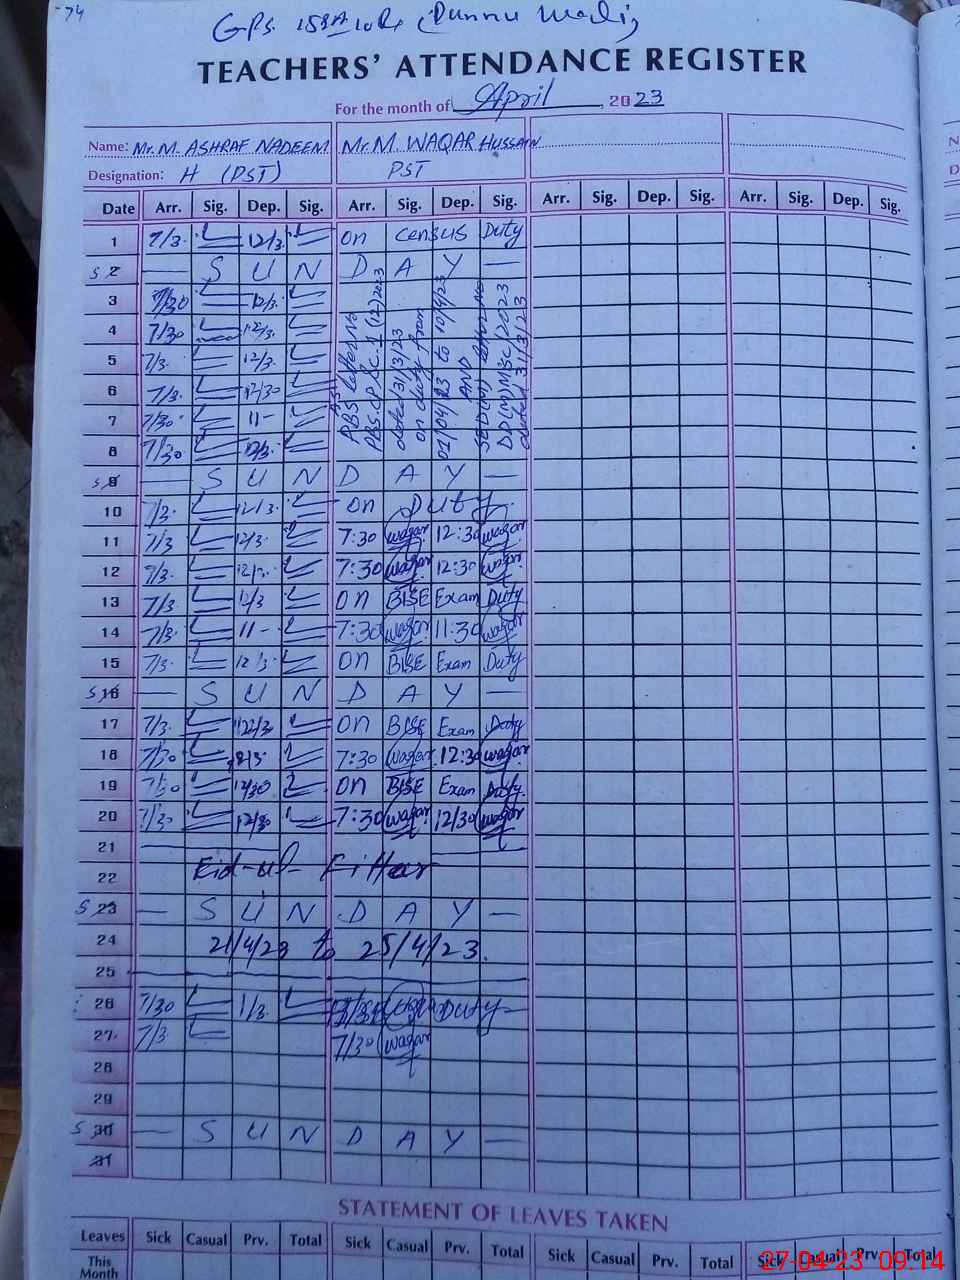 TEACHERS' ATTENDANCE REGISTER
For the month of April, 2023
Name: Mr. M. ASHRAF NADEEM Mr. M. WAQAR HUSSAIN
Designation: H (PST) PST
Date Arr. Sig. Dep. Sig. Arr. Sig. Dep. Sig. Arr. Sig. Dep. Sig. Arr. Sig. Dep. Sig.
1 7/3. 12/3. on census Duty
S 2 — S U N D A Y —
3 7/30 12/3.
4 7/30 12/3.
5 7/3. 12/3.
6 7/3. 12/30
7 7/30 11-
8 7/30 12/3.
PBS letter No
dated 31/3/23
on duty from
01/04/23 to 10/4/23
AND
dated 31/3/23
S 9 — S U N D A Y —
10 7/3. 12/3. on Duty
11 7/3 12/3. 7:30 waqar 12:30 waqar
12 7/3. 7:30 waqar 12:30 waqar
13 7/3. 12/3 on BISE Exam Duty
14 7/3. 11- 7:30 waqar 11:30 waqar
15 7/3. 12/3. on BISE Exam Duty
S 16 — S U N D A Y —
17 7/3. on BISE Exam Duty
18 7/30 7:30 waqar 12:30 waqar
19 7/30 12/30 on BISE Exam Duty
20 7/30 12/30 7:30 waqar 12/30 waqar
21
22 Eid-ul-Fittar
S 23 — S U N D A Y —
24 21/4/23 to 25/4/23.
25
26 7/30 1/3. Duty
27 7/3 7/30 waqar
28
29
S 30 — S U N D A Y —
31
STATEMENT OF LEAVES TAKEN
Leaves Sick Casual Prv. Total Sick Casual Prv. Total Sick Casual Prv. Total Sick Casual Prv. Total
This Month
27-04-23 09:14